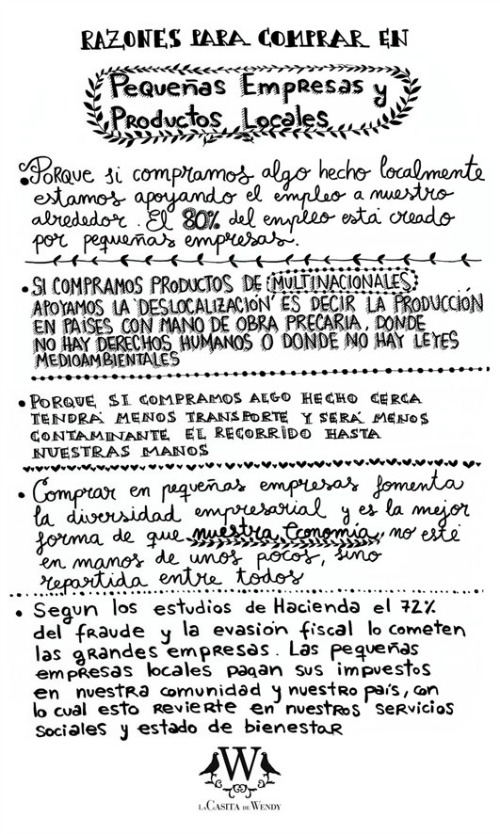 RAZONES PARA COMPRAR EN
Pequeñas Empresas y
Productos Locales
•Porque si compramos algo hecho localmente
estamos apoyando el empleo a nuestro
alrededor. El 80% del empleo está creado
por pequeñas empresas.
• SI COMPRAMOS PRODUCTOS DE MULTINACIONALES
APOYAMOS LA 'DESLOCALIZACIÓN' ES DECIR LA PRODUCCIÓN
EN PAISES CON MANO DE OBRA PRECARIA, DONDE
NO HAY DERECHOS HUMANOS O DONDE NO HAY LEYES
MEDIOAMBIENTALES
• PORQUE SI COMPRAMOS ALGO HECHO CERCA
TENDRÁ MENOS TRANSPORTE Y SERÁ MENOS
CONTAMINANTE EL RECORRIDO HASTA
NUESTRAS MANOS
• Comprar en pequeñas empresas fomenta
la diversidad empresarial y es la mejor
forma de que nuestra Economía, no esté
en manos de unos pocos, sino
repartida entre todos
• Segun los estudios de Hacienda el 72%
del fraude y la evasión fiscal lo cometen
las grandes empresas. Las pequeñas
empresas locales pagan sus impuestos
en nuestra comunidad y nuestro país, con
lo cual esto revierte en nuestros servicios
sociales y estado de bienestar
W
LA CASITA DE WENDY